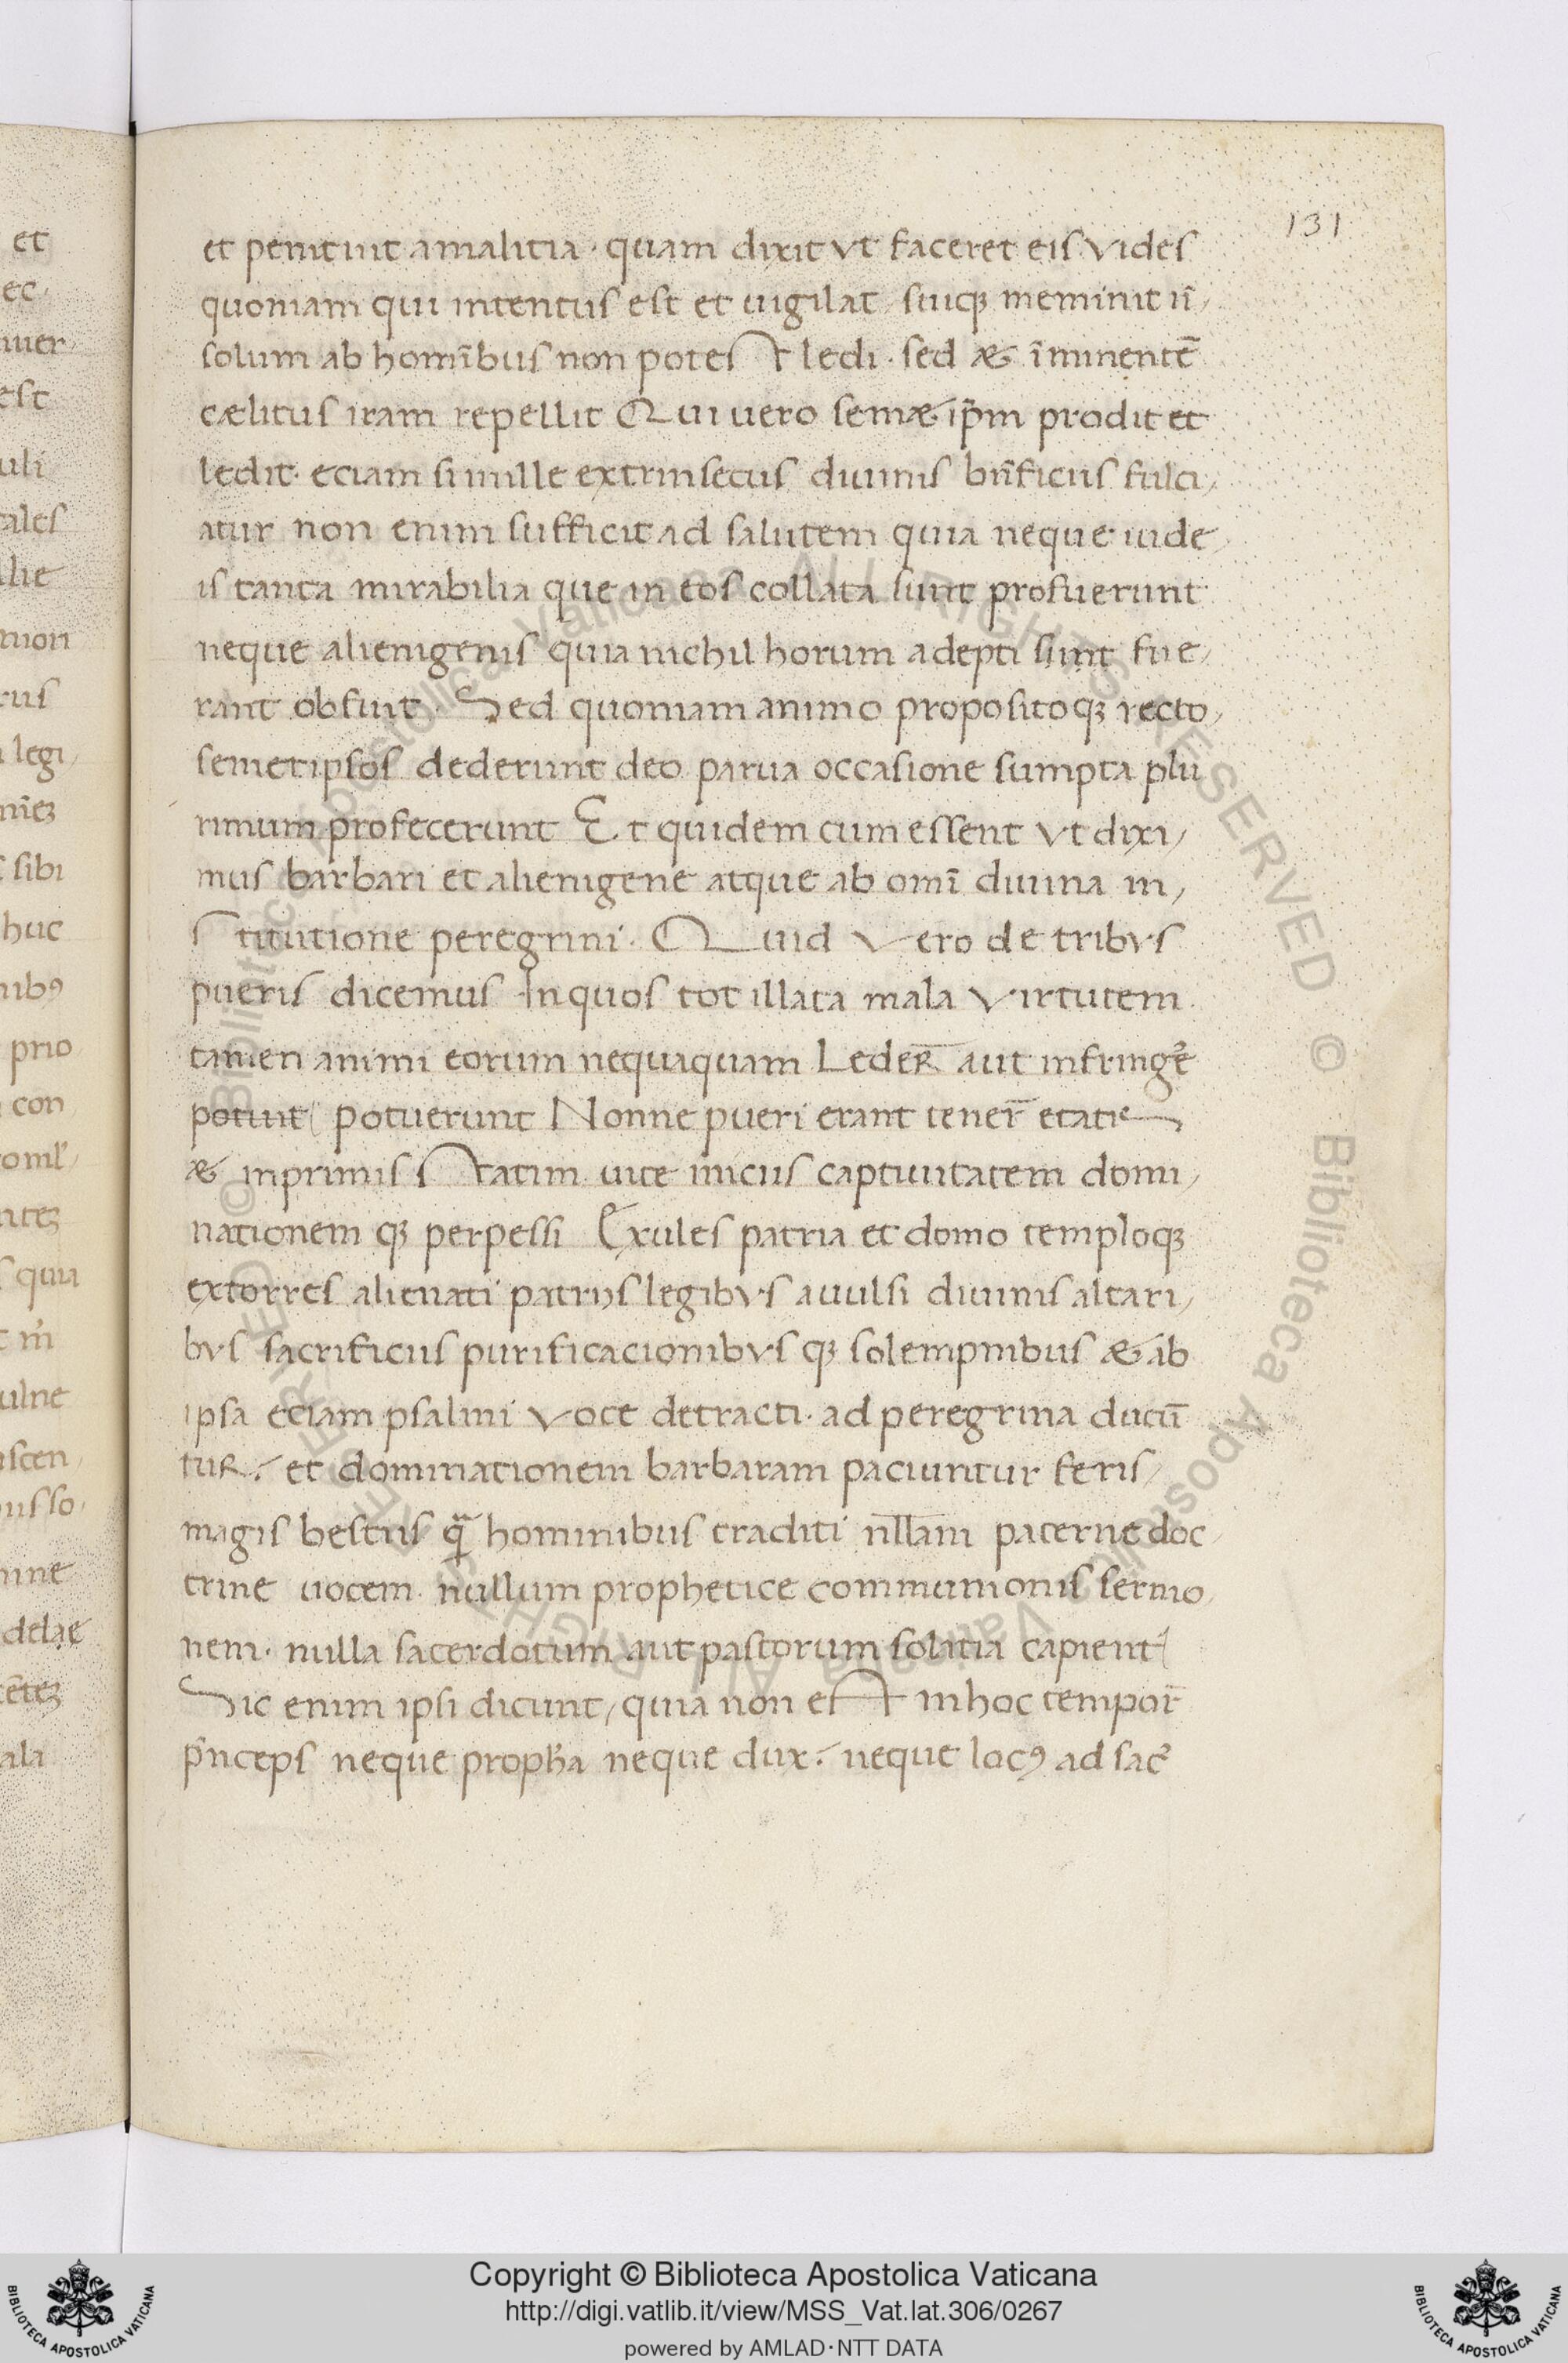 131
et penituit a malitia · quam dixit vt faceret eis vides
quoniam qui intentus est et uigilat / suiq; meminit n̄ /
solum ab hom̄ibus non potest ledi · sed & īminentē
cælitus iram repellit Qui uero semæ ip̄m prodit et
ledit · eciam si mille extrinsecus diuinis bn̄ficiis fulci /
atur non enim sufficit ad salutem quia neque iude /
is tanta mirabilia que in eos collata sunt profuerunt
neque alienigenis quia nichil horum adepti sunt fue /
rant obfuit · Sed quoniam animo propositoq; recto /
semetipsos dederunt deo parua occasione sumpta plu
rimum profecerunt Et quidem cum essent vt dixi /
mus barbari et alienigene atque ab omī diuina in /
stitutione peregrini · Quid vero de tribvs
pueris dicemus In quos tot illata mala virtutem
tamen animi eorum nequaquam Leder̄ aut infringe᷑
potuit potuerunt Nonne pueri erant tener̄ etatis
& inprimis statim uite inicus captiuitatem domi /
nationem q; perpessi Exules patria et domo temploq;
extorres alienati patrijs legibvs auulsi diuinis altari /
bvs sacrificiis purificacionibvs q; solempnibus & ab
ipsa eciam psalmi voce detracti · ad peregrina ducū
tur · et dominationem barbaram paciuntur feris /
magis bestiis q̄ hominibus traditi nll̄am paterne doc /
trine uocem · nullum prophetice communionis sermo /
nem · nulla sacerdotum aut pastorum solatia capient
Sic enim ipsi dicunt / quia non est in hoc tempor̄
p̄nceps neque proph̄a neque dux · neque locꝰ ad sac᷑
et
ec ·
est
uli
tales
legi /
sibi
huc
nibꝰ
prio
con
quia
ulne
mine
ala
Copyright © Biblioteca Apostolica Vaticana
http://digi.vatlib.it/view/MSS_Vat.lat.306/0267
powered by AMLAD·NTT DATA
BIBLIOTECA APOSTOLICA VATICANA
BIBLIOTECA APOSTOLICA VATICANA